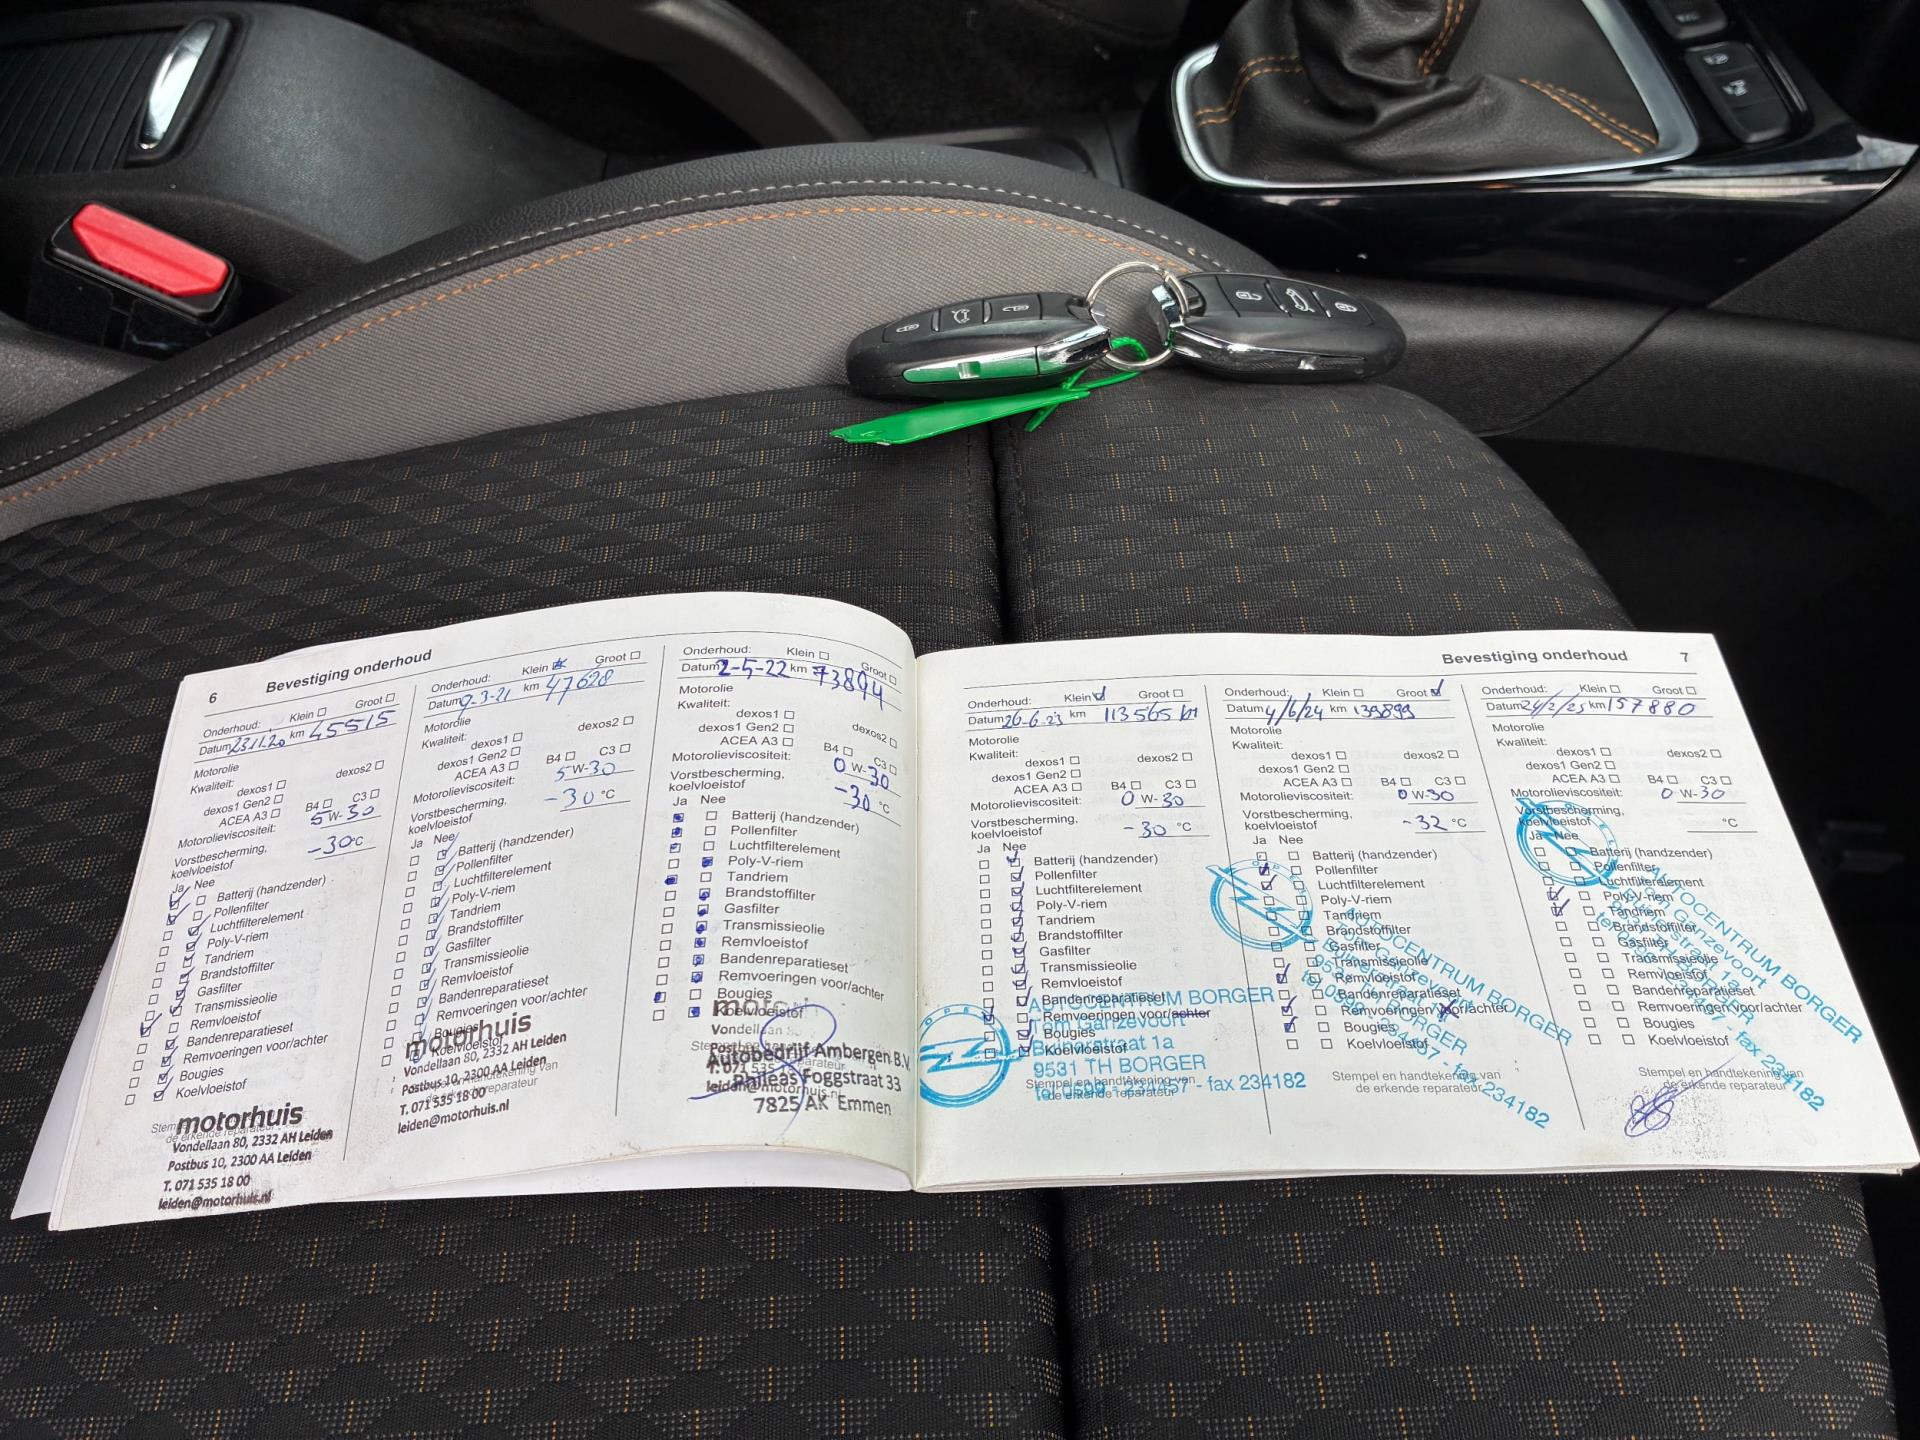 6 Bevestiging onderhoud
Onderhoud: Klein Groot
Datum 23.11.20 km 45515
Motorolie
Kwaliteit:
dexos1 dexos2
dexos1 Gen2
ACEA A3 B4 C3
Motorolieviscositeit: 5 W-30
Vorstbescherming,
koelvloeistof -30 °C
Ja Nee
Batterij (handzender)
Pollenfilter
Luchtfilterelement
Poly-V-riem
Tandriem
Brandstoffilter
Gasfilter
Transmissieolie
Remvloeistof
Bandenreparatieset
Remvoeringen voor/achter
Bougies
Koelvloeistof
de erkende reparateur
motorhuis
Vondellaan 80, 2332 AH Leiden
Postbus 10, 2300 AA Leiden
T. 071 535 18 00
leiden@motorhuis.nl
Onderhoud: Klein Groot
Datum 9-3-21 km 47628
Motorolie
Kwaliteit:
dexos1 dexos2
dexos1 Gen2
ACEA A3 B4 C3
Motorolieviscositeit: 5 W-30
Vorstbescherming,
koelvloeistof -30 °C
Ja Nee
Batterij (handzender)
Pollenfilter
Luchtfilterelement
Poly-V-riem
Tandriem
Brandstoffilter
Gasfilter
Transmissieolie
Remvloeistof
Bandenreparatieset
Remvoeringen voor/achter
Bougies
Koelvloeistof
motorhuis
Vondellaan 80, 2332 AH Leiden
Postbus 10, 2300 AA Leiden
T. 071 535 18 00
leiden@motorhuis.nl
Onderhoud: Klein Groot
Datum 2-5-22 km 73894
Motorolie
Kwaliteit:
dexos1 dexos2
dexos1 Gen2
ACEA A3 B4 C3
Motorolieviscositeit: 0 W-30
Vorstbescherming,
koelvloeistof -30 °C
Ja Nee
Batterij (handzender)
Pollenfilter
Luchtfilterelement
Poly-V-riem
Tandriem
Brandstoffilter
Gasfilter
Transmissieolie
Remvloeistof
Bandenreparatieset
Remvoeringen voor/achter
Bougies
Koelvloeistof
Vondellaan
Autobedrijf Ambergen B.V.
Phileas Foggstraat 33
leiden@motorhuis.nl
7825 AK Emmen
Bevestiging onderhoud 7
Onderhoud: Klein Groot
Datum 26-6-23 km 113565 km
Motorolie
Kwaliteit:
dexos1 dexos2
dexos1 Gen2
ACEA A3 B4 C3
Motorolieviscositeit: 0 W-30
Vorstbescherming,
koelvloeistof -30 °C
Ja Nee
Batterij (handzender)
Pollenfilter
Luchtfilterelement
Poly-V-riem
Tandriem
Brandstoffilter
Gasfilter
Transmissieolie
Remvloeistof
Bandenreparatieset
Remvoeringen voor/achter
Bougies
Koelvloeistof
Stempel en handtekening van
de erkende reparateur
OPEL
AUTOCENTRUM BORGER
Tom Ganzevoort
Bruinarstraat 1a
9531 TH BORGER
tel. 0599 - 234457 - fax 234182
Onderhoud: Klein Groot
Datum 4/6/24 km 139899
Motorolie
Kwaliteit:
dexos1 dexos2
dexos1 Gen2
ACEA A3 B4 C3
Motorolieviscositeit: 0 W-30
Vorstbescherming,
koelvloeistof -32 °C
Ja Nee
Batterij (handzender)
Pollenfilter
Luchtfilterelement
Poly-V-riem
Tandriem
Brandstoffilter
Gasfilter
Transmissieolie
Remvloeistof
Bandenreparatieset
Remvoeringen voor/achter
Bougies
Koelvloeistof
Stempel en handtekening van
de erkende reparateur
AUTOCENTRUM BORGER
Tom Ganzevoort
9531 TH BORGER
fax 234182
Onderhoud: Klein Groot
Datum 24/2/25 km 157880
Motorolie
Kwaliteit:
dexos1 dexos2
dexos1 Gen2
ACEA A3 B4 C3
Motorolieviscositeit: 0 W-30
Vorstbescherming,
koelvloeistof °C
Ja Nee
Batterij (handzender)
Pollenfilter
Luchtfilterelement
Poly-V-riem
Tandriem
Brandstoffilter
Gasfilter
Transmissieolie
Remvloeistof
Bandenreparatieset
Remvoeringen voor/achter
Bougies
Koelvloeistof
Stempel en handtekening van
de erkende reparateur
AUTOCENTRUM BORGER
Tom Ganzevoort
fax 234182